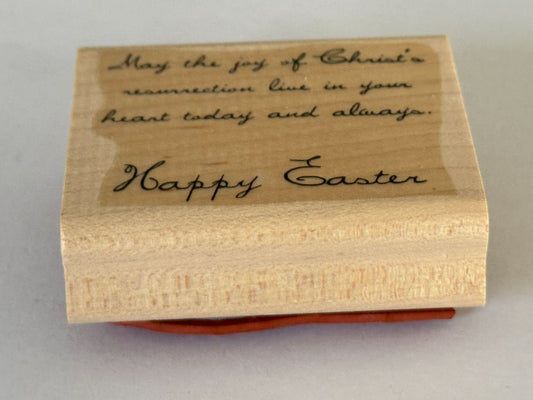 May the joy of Christ's
resurrection live in your
heart today and always.
Happy Easter